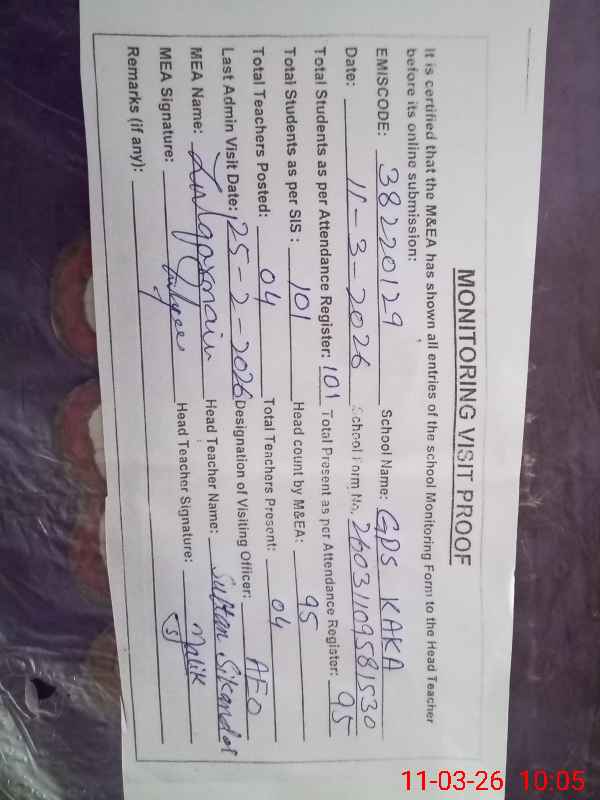 MONITORING VISIT PROOF
It is certified that the M&EA has shown all entries of the school Monitoring Form to the Head Teacher
before its online submission:
EMISCODE: 38220129 School Name: GPS KAKA
Date: 11-3-2026 School Form No. 26031109581530
Total Students as per Attendance Register: 101 Total Present as per Attendance Register: 95
Total Students as per SIS: 101 Head count by M&EA: 95
Total Teachers Posted: 04 Total Teachers Present: 04
Last Admin Visit Date: 25-2-2026 Designation of Visiting Officer: AEO
MEA Name: Head Teacher Name: Sultan Sikandar
MEA Signature: Head Teacher Signature: Malik
Remarks (if any):
11-03-26 10:05